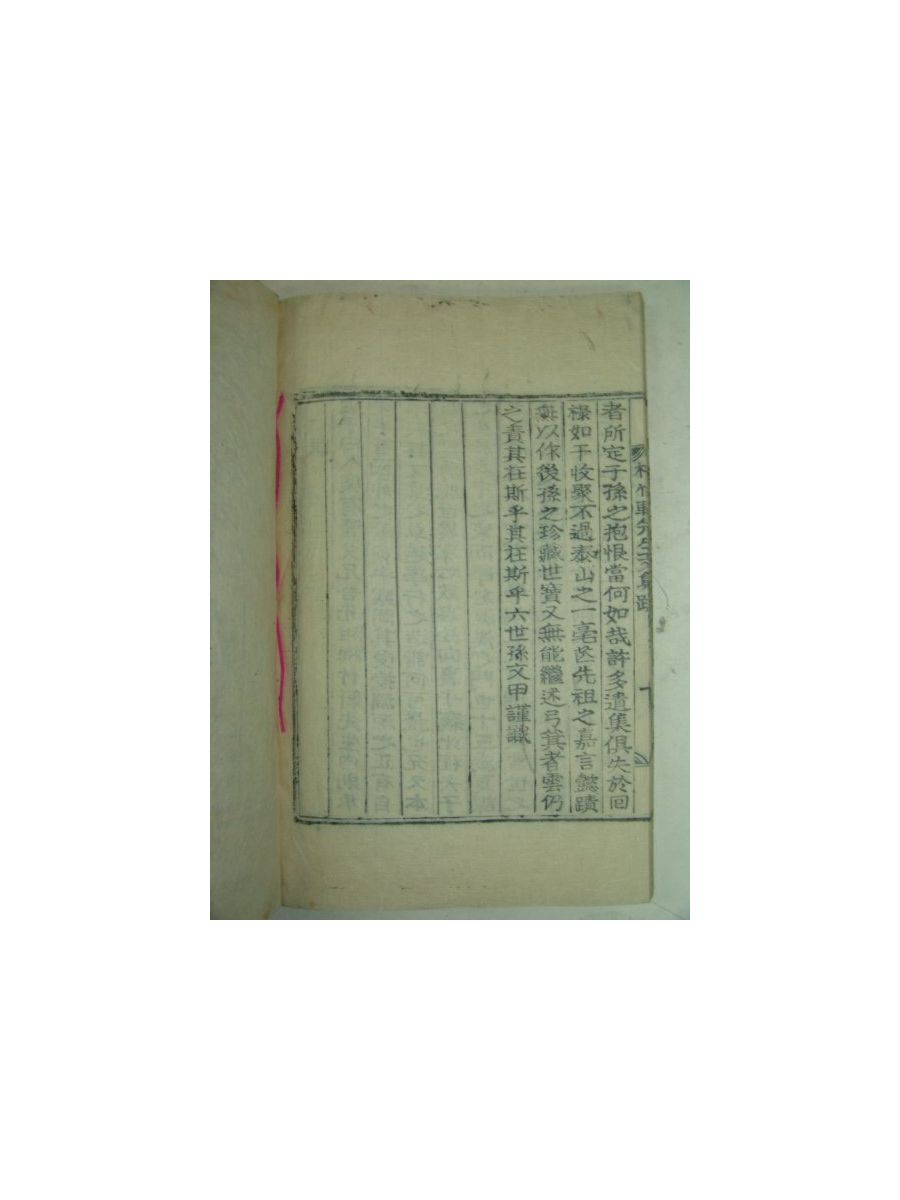 者所定子孫之抱恨當何如哉許多遺集俱失於回
祿如干收聚不過泰山之一毫芒先祖之嘉言懿蹟
無以作後孫之珍藏世寶又無能繼述弓箕者雲仍
之責其在斯乎其在斯乎六世孫文甲謹識
竹軒先生文集跋